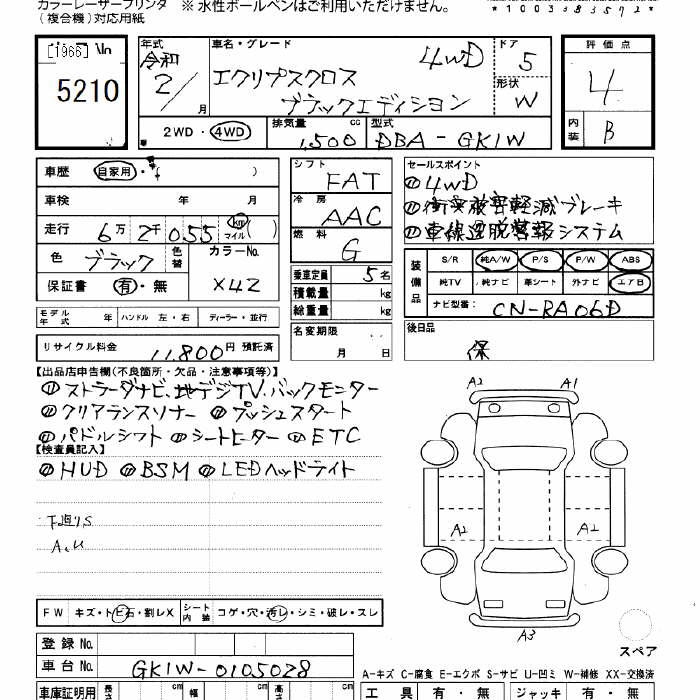 カラーレーザープリンタ ※水性ボールペンはご利用いただけません。
(複合機)対応用紙
*1003
5210
年式
令和
2/
月
車名・グレード
4WD
エクリプスクロス
ブラックエディション
ドア
5
形状
W
評価点
4
内装
B
2WD・4WD
排気量
1,500
cc
型式
DBA-GK1W
車歴
自家用・
)
車検
年
月
走行
6万2千055
km
マイル
( )
色
ブラック
色替
カラーNo.
X42
保証書
有・無
モデル年式
年
ハンドル 左・右
ディーラー・並行
リサイクル料金
11,800円 預託済
シフト
FAT
冷房
AAC
燃料
G
乗車定員
5名
積載量
kg
総重量
kg
名変期限
月 日
セールスポイント
4WD
衝突被害軽減ブレーキ
車線逸脱警報システム
装備品
S/R 純A/W P/S P/W ABS
純TV 純ナビ 革シート 外ナビ エアB
ナビ型番:
CN-RA06D
後日品
保
【出品店申告欄(不良箇所・欠品・注意事項等)】
ストラーダナビ、地デジTV、バックモニター
クリアランスソナー プッシュスタート
パドルシフト シートヒーター ETC
【検査員記入】
HUD BSM LEDヘッドライト
下廻りS
A.U
A2
A1
A2
A2
A3
スペア
FW
キズ・トビ石・割レX
シート内装
コゲ・穴・汚レ・シミ・破レ・スレ
登録No.
車台No.
GK1W-0105028
A-キズ C-腐食 E-エクボ S-サビ U-凹ミ W-補修 XX-交換済
車庫証明用
長さ
cm
幅
cm
高さ
cm
工具
有・無
ジャッキ
有・無